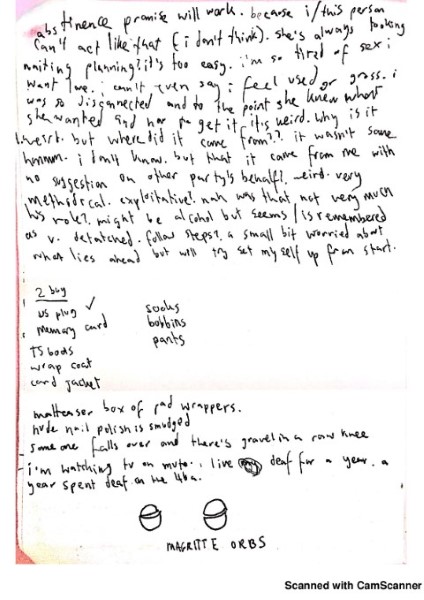 abstinence promise will work. because i/this person
can't act like that (i don't think). she's always looking
waiting planning? it's too easy. i'm so tired of sex i
want love. i can't even say i feel used or gross. i
was so disconnected and to the point she knew what
she wanted and how to get it. it's weird. why is it
weird. but where did it come from?? it wasn't some
hmmm. i don't know. but that it came from me with
no suggestion on other party's behalf?. weird. very
methodical. exploitative?. nah was that, not very much
his role?. might be alcohol but seems/is remembered
as v. detatched. follow steps?. a small bit worried about
what lies ahead but will try set myself up from start.
2 buy
us plug ✓
memory card
TS boots
wrap coat
cord jacket
socks
bobbins
pants
malteaser box of pad wrappers.
nude nail polish is smudged
someone falls over and there's gravel in a raw knee
- i'm watching tv on mute. i live deaf for a year. a
year spent deaf on the 46a.
MAGRITTE ORBS
Scanned with CamScanner